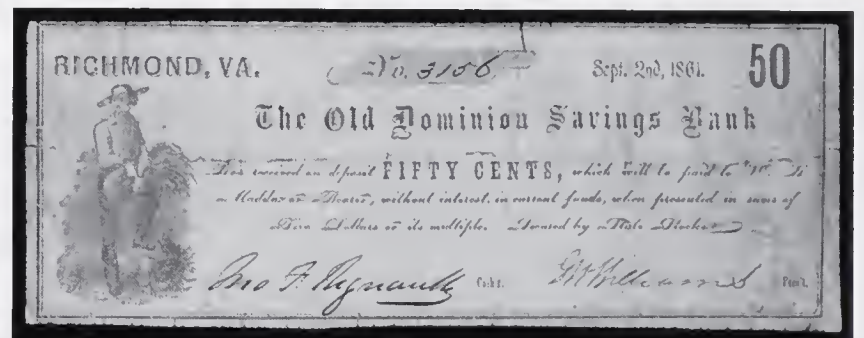 RICHMOND, VA. No. 3156 Sept. 2nd, 1861. 50
The Old Dominion Savings Bank
Has received on deposit FIFTY CENTS, which will be paid to
or Bearer, without interest, in current funds, when presented in sums of
Five Dollars or its multiple. Secured by State Stocks
Jno F. Regnault Cashr. Williams Prest.